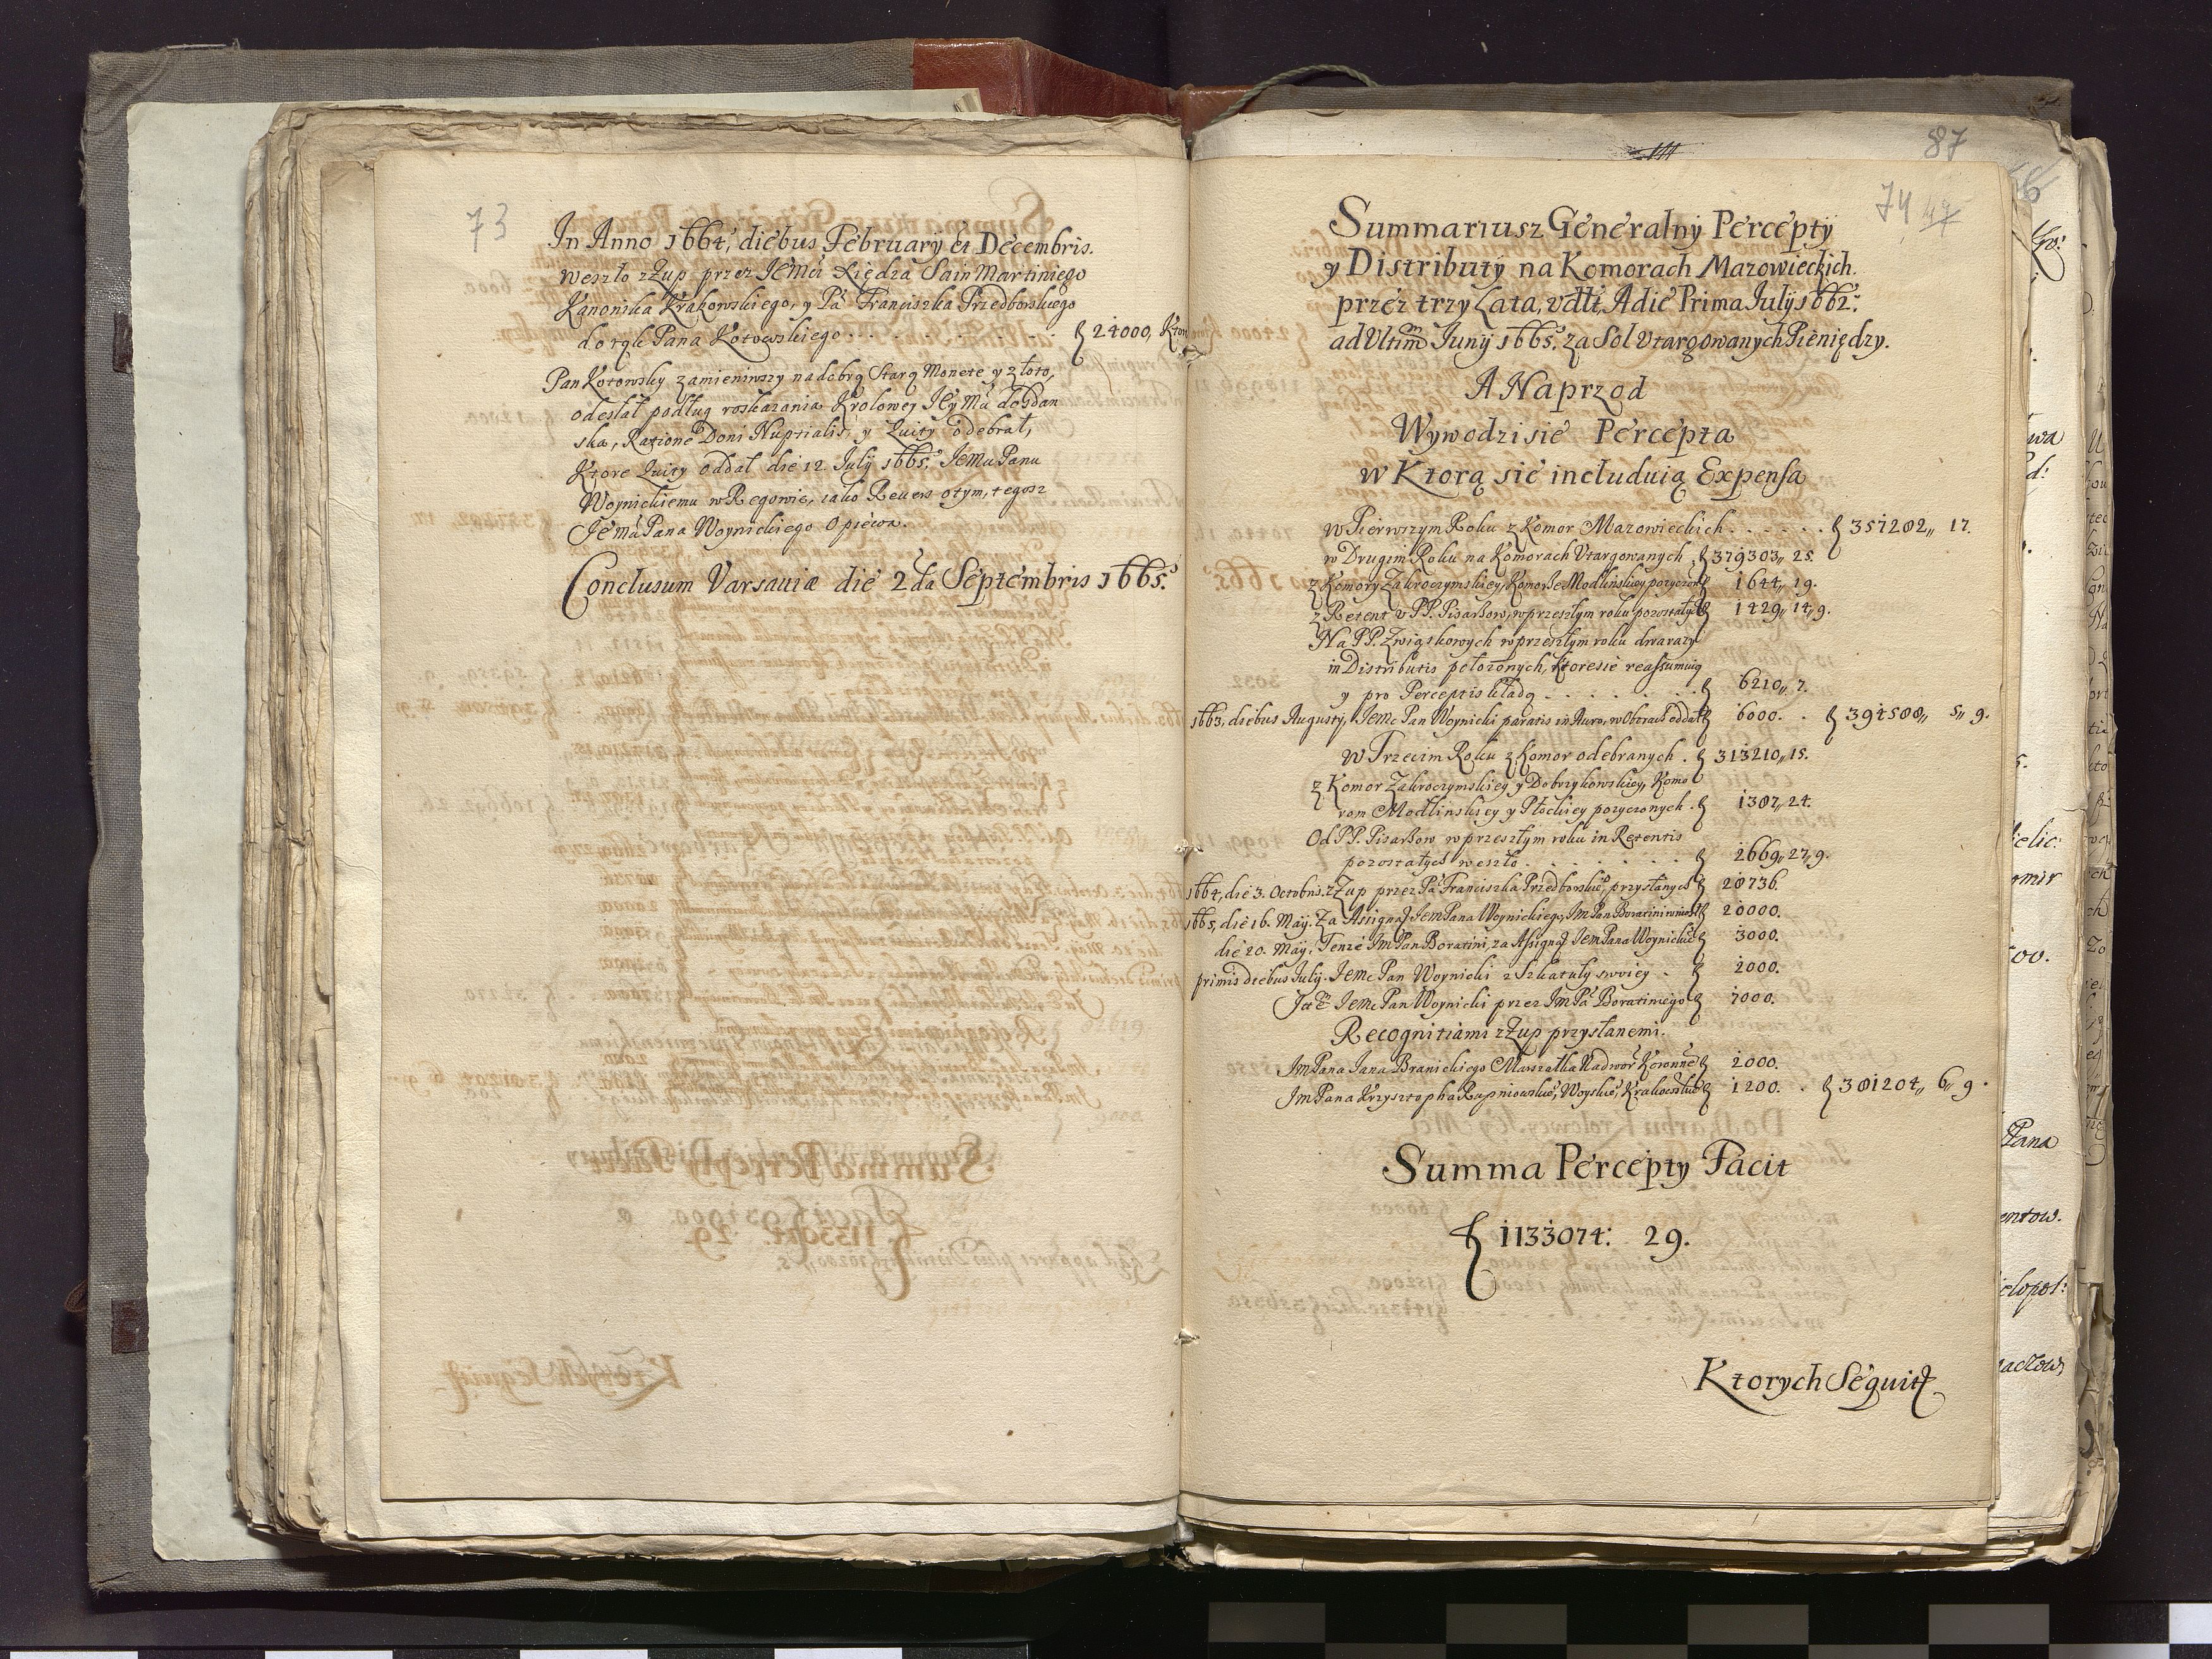 73
In Anno 1664, diebus February et Decembris.
weszło z Zup przez Jemci Xiędza Sain Martiniego
Kanonika Krakowskiego, y Pa Franciszka Przedborskiego
do rąk Pana Kotowskiego . . . . . . . . 24000,
Pan Kotowsky zamieniwszy na dobrą Starą Monetę y złoto,
odesłał podług roskazania Krolowey Jey Mci do Gdan
ska, Ratione Doni Nuptialis, y Quity odebrał,
Ktore Quity oddał die 12. July 1665. Jemu Panu
Woynickiemu w Regowie, iako Revers o tym, tegosz
Jemci Pana Woynickiego opiewa.
Conclusum Varsaviæ die 2da Septembris 1665.
87
74 47
Summariusz Generalny Percepty
y Distributy na Komorach Mazowieckich.
przez trzy Lata, vdłt, A die Prima July 1662.
ad Vltim Juny 1665. za Sol Vtargowanych Pieniędzy.
A Naprzod
Wywodzi sie Percepta
w Ktorą sie includuią Expensa
w Pierwszym Roku z Komor Mazowieckich . . . . . . 357282,, 17.
w Drugim Roku na Komorach Vtargowanych . 379303,, 25.
z Komory Zakroczymskiey, Komorze Modlinskiey pozyczon 1644,, 19.
z Retent v PP. Pisarzow, w przeszłym roku pozostałych 1429,, 14,, 9.
Na PP. Związkowych w przeszłym roku dwa razy
in Distributis położonych, ktore sie reassumuią
y pro Perceptis kładą . . . . . . . 6210,, 7.
1663, diebus Augusty, Jemc Pan Woynicki paratis in Auro, w Obozach oddał 6000. . 394588,, 5,, 9.
w Trzecim Roku z Komor odebranych . 313210,, 15.
z Komor Zakroczymskiey y Dobrzykowskiey, Komo
rom Modlinskiey y Płockiey pozyczonych . 1387,, 24.
Od PP. Pisarzow w przeszłym roku in Retentis
pozostałych weszło . . . . . . . 2669,, 27,, 9.
1664, die 3. Octobris. z Zup przez Pa Franciszka Przedborskie, przysłanych 28736.
1665, die 16. May. Za Assignaą Jem Pana Woynickiego, Im Pan Boratini wniosł 20000.
die 20. May. Tenze Im Pan Boratini, za Assignaą Jem Pana Woynickie 3000.
primis diebus July. Jemc Pan Woynicki z Szkatuły swoiey . 2000.
Jtē Jemc Pan Woynicki przez Im Pa Boratiniego 7000.
Recognitiami z Zup przysłanemi.
Im Pana Jana Branickiego Marszałka Nadwor Koronne 2000.
Im Pana Krzysztopha Rupniowskie, Woyskie, Krakowskie 1200. . 381204,, 6,, 9.
Summa Percepty Facit
1133074: 29.
Ktorych Seguitą